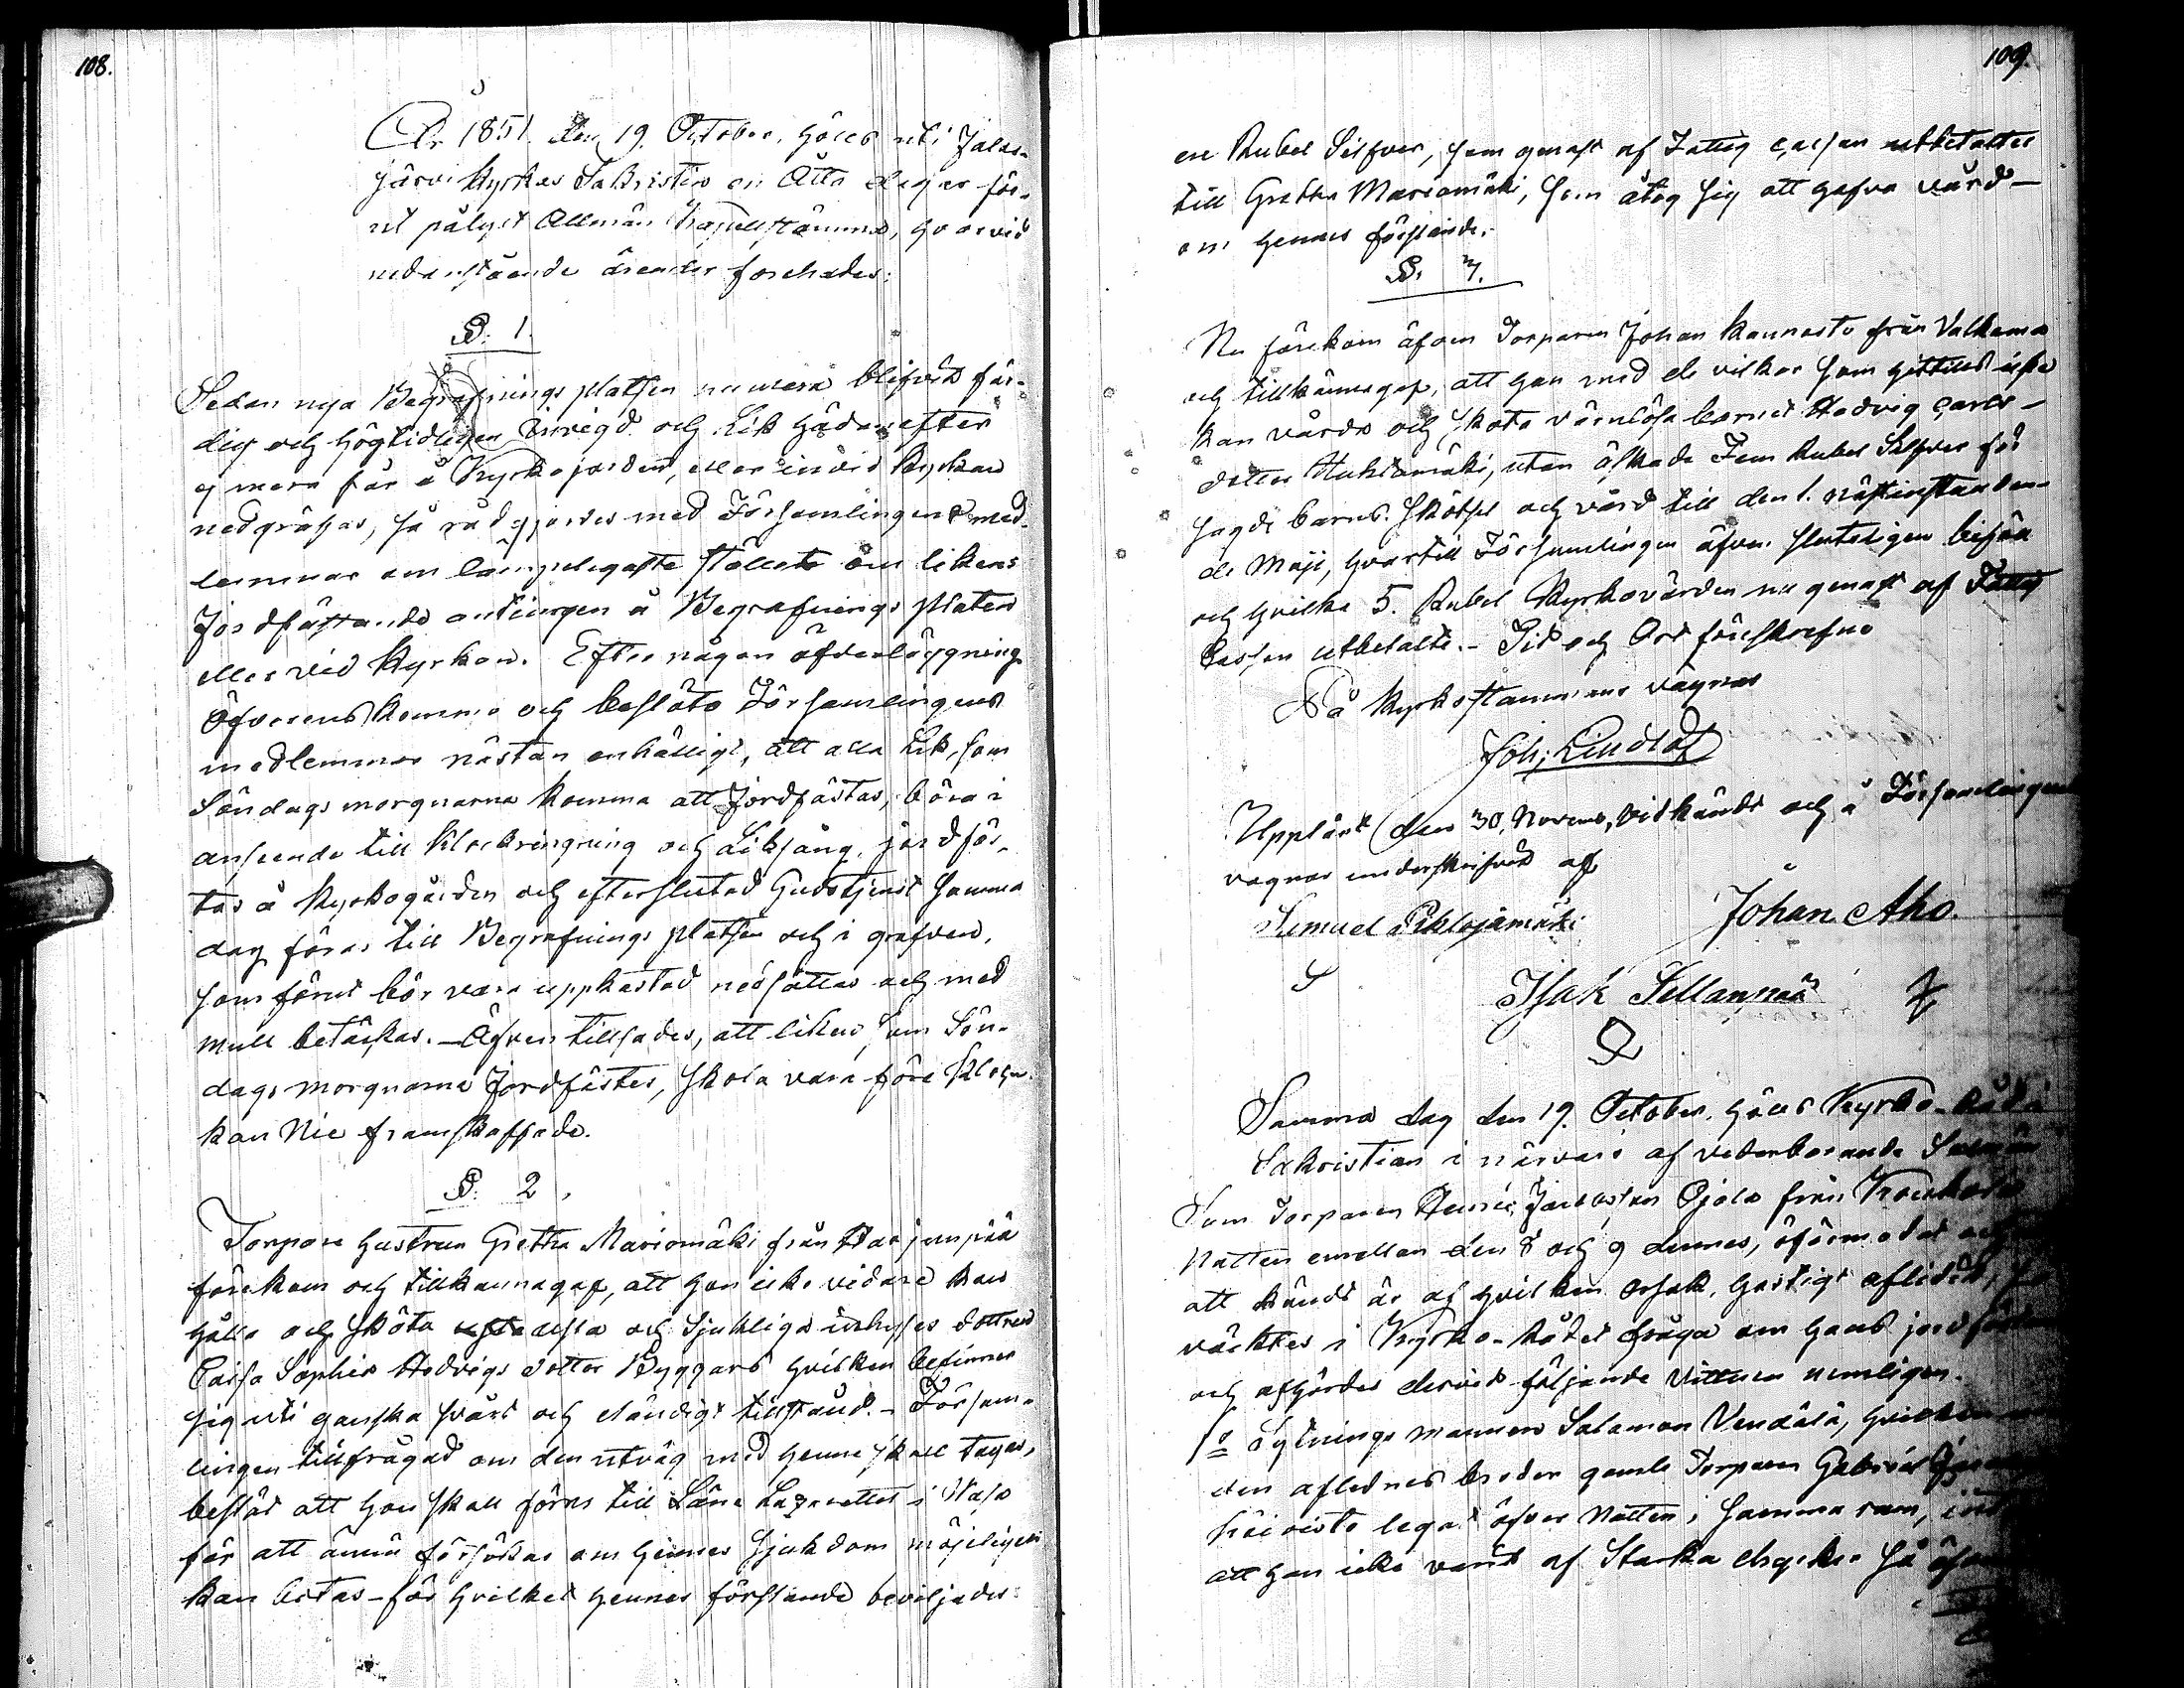 108.
År 1851 den 19. October, hölls uti Jalas-
järvi Kyrkas Sakristia en Åtta dagar för-
ut pålyst Allmän Kapellstämma, hvarvid
nedanstående ärender forehades:
§. 1.
Sedan nya Begrafnings platsen numera blifvit fär-
dig och högtidligen invigd och Lik hädanefter
ej mera får å Kyrkojorden, eller invid Kyrkan
nedgräfvas, så rådgjordes med Församlingens med-
lemmar om lämpeligaste stället om likens
Jordfästande antingen å Begrafnings platsen
eller vid Kyrkan. Efter någon öfverläggning
Öfverenskommo och beslöto Församlingens
medlemmar nästan enhälligt, att alla Lik, som
Söndags morgnarna komma att Jordfästas, böra i
anseende till Klockringning och Liksång, jordfäs-
tas å Kyrkogården och efterslutad Gudstjenst samma
dag föras till Begrafnings platsen och i grafven,
som förut bör vara uppkastad nedsättas och med
mull betäckas. - Äfven tillsades, att liken, som Sön-
dags morgnarna Jordfästes, skola vara före Kloc-
kan Nie framskaffade.
§. 2.
Torpare hustrun Gretha Mariomäki från Harjunpää
förekom och tillkännagaf, att hon icke vidare kan
hålla och sköta usla och sjukliga inhyses dottren
Caisa Sophia Hedvigs dotter Byggars hvilken befinner
sig uti ganska svårt och eländigt tillstånd. - Försam-
lingen tillfrågad om den utväg med henne skall tagas,
beslöt att hon skall föras till Läns Lazarettet i Wasa
för att ännu försökas om hennes sjukdom möjeligen
kan botas - för hvilket hennes förslande beviljades:
109.
en Rubel Silfver, som genast af Fattig cassan utbetaltes
till Gretha Mariomäki, som åtog sig att hafva vård
om hennes förslande.
§. 3.
Nu förekom äfven Torparen Johan Kannosto från Valkama
och tillkännagaf, att han med de vilkor som hittills icke
kan vårda och sköta värnlösa barnet Hedvig Carls-
dotter Huhtamäki, utan äskade Fem Rubel Silfver för
sagde barns skötsel och vård till den 1. nästinstunden-
de Maji, hvartill Församlingen äfven slutligen biföll
och hvilka 5. Rubel Kyrkovärden nu genast af Fattig
Cassan utbetalte. - Tid och Ort förskrefne
På Kyrkostämmans vägnar
Joh: Lindlöf
Uppläst den 30. Novemb, vidkändt och å Församlingens
vägnar underskrifvit af
Samuel Pihlajamäki
Johan Aho.
Isak Sillanpää
Samma dag den 19. October, hölls Kyrko-Råd i
Sakristian i närvaro af vederborande Ledamöter
Som Torparen Henric Jacobsson Ojala från
Natten emellan den 8 och 9 dennes, oförmodat och
att kändt är af hvilken orsak, hastigt aflidit,
väcktes i Kyrko-Rådet fråga om hans jordfäst
och afhördes dervid följande vittnen nemligen.
1o Sytnings mannen Salamon Vendälä, hvilken
den aflednes broder gamle Torparen Gabriel
legat öfver natten i samma rum,
att han icke varit af Starka drycker så